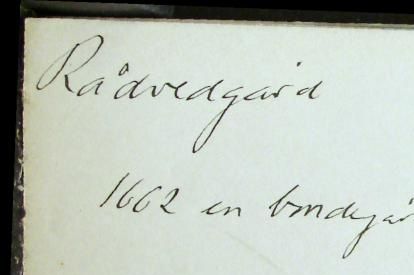 Rådvedgård
1662 en bondegår